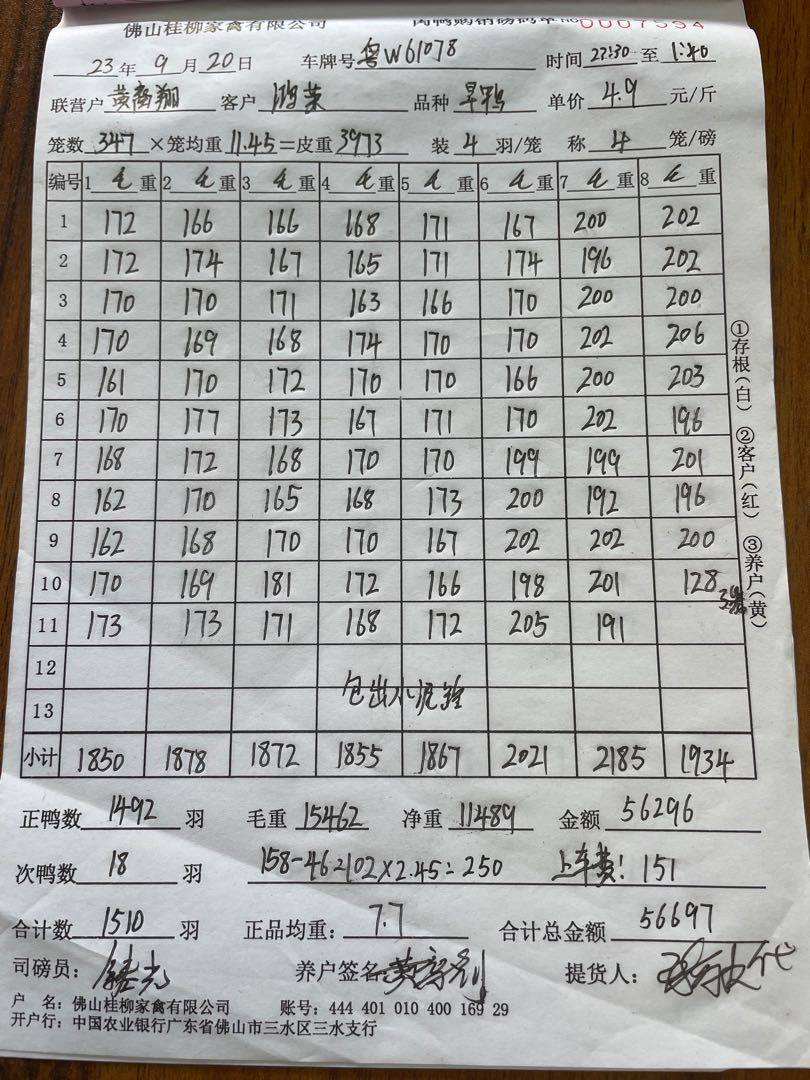 佛山桂柳家禽有限公司 肉鸭购销磅码单 No 0007534
23年 9月 20日 车牌号 粤W61078 时间 22:30 至 1:40
联营户 黄 翔 客户 鸿荣 品种 旱鸭 单价 4.9 元/斤
笼数 347 ×笼均重 11.45 =皮重 3973 装 4 羽/笼 称 4 笼/磅
编号 1 毛 重 2 毛 重 3 毛 重 4 毛 重 5 毛 重 6 毛 重 7 毛 重 8 毛 重
1 172 166 166 168 171 167 200 202
2 172 174 167 165 171 174 196 202
3 170 170 171 163 166 170 200 200
4 170 169 168 174 170 170 202 206
5 161 170 172 170 170 166 200 203
6 170 177 173 167 171 170 202 196
7 168 172 168 170 170 199 199 201
8 162 170 165 168 173 200 192 196
9 162 168 170 170 167 202 202 200
10 170 169 181 172 166 198 201 128 3笼
11 173 173 171 168 172 205 191
12
包出小
13
小计 1850 1878 1872 1855 1867 2021 2185 1934
正鸭数 1492 羽 毛重 15462 净重 11489 金额 56296
次鸭数 18 羽 158-46=102×2.45=250 上车费! 151
合计数 1510 羽 正品均重: 7.7 合计总金额 56697
司磅员: 养户签名 提货人: 代
户 名: 佛山桂柳家禽有限公司 账号: 444 401 010 400 169 29
开户行: 中国农业银行广东省佛山市三水区三水支行
①存根(白) ②客户(红) ③养户(黄)